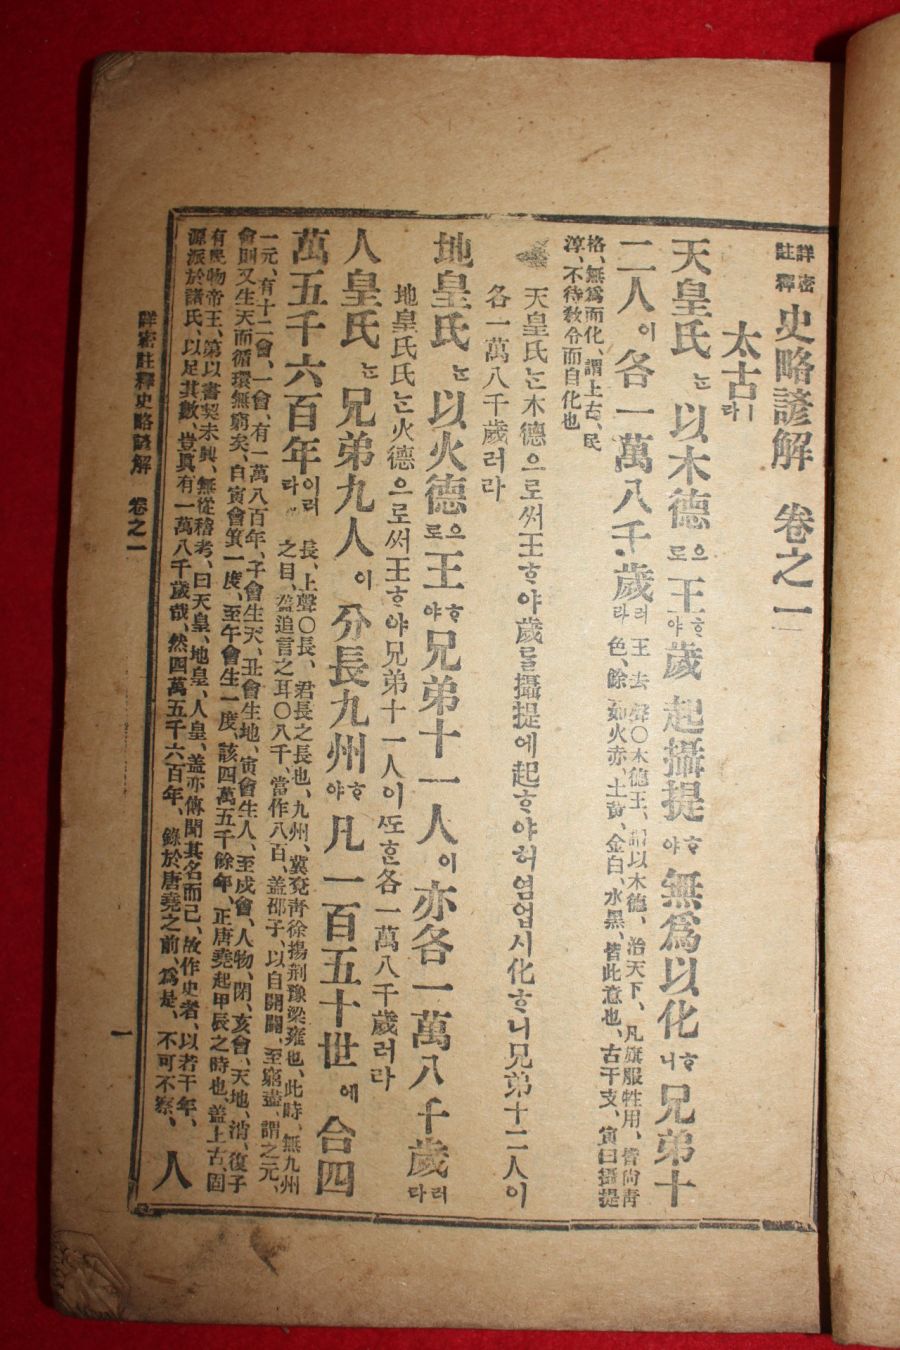 詳密註釋 史略諺解 卷之一
太古ㅣ라
天皇氏는 以木德으로 王ᄒᆞ야 歲起攝提ᄒᆞ야 無爲以化ᄒᆞ니 兄弟十
二人이 各一萬八千歲러라 王去聲○木德王、謂以木德、治天下、凡旗服牲用、皆尙靑
色、餘如火赤、土黃、金白、水黑、皆此意也、古干支、寅曰攝提
格、無爲而化、謂上古、民
淳、不待敎令而自化也
天皇氏는木德으로써王ᄒᆞ야歲를攝提에起ᄒᆞ야허염업시化ᄒᆞ니兄弟十二人이
各一萬八千歲러라
地皇氏는 以火德으로 王ᄒᆞ야 兄弟十一人이 亦各一萬八千歲러라
地皇氏는火德으로써王ᄒᆞ야兄弟十一人이ᄯᅩᄒᆞᆫ各一萬八千歲러라
人皇氏는 兄弟九人이 分長九州ᄒᆞ야 凡一百五十世에 合四
萬五千六百年이러라 長、上聲○長、君長之長也、九州、冀兗靑徐揚荊豫梁雍也、此時、無九州
之目、盖追言之耳○八千、當作八百、盖邵子、以自開闢、至窮盡、謂之元、
一元、有十二會、一會、有一萬八百年、子會生天、丑會生地、寅會生人、至戌會、人物、閉、亥會、天地、消、復子
會則又生天而循環無窮矣、自寅會箕一度、至午會星一度、該四萬五千餘年、正唐堯起甲辰之時也、盖上古、固
有民物帝王、第以書契未興、無從稽考、曰天皇、地皇、人皇、盖亦傳聞其名而已、故作史者、以若干年、
源派於諸氏、以足其數、豈眞有一萬八千歲哉、然四萬五千六百年、錄於唐堯之前、爲是、不可不察、 人
詳密註釋史略諺解 卷之一
一